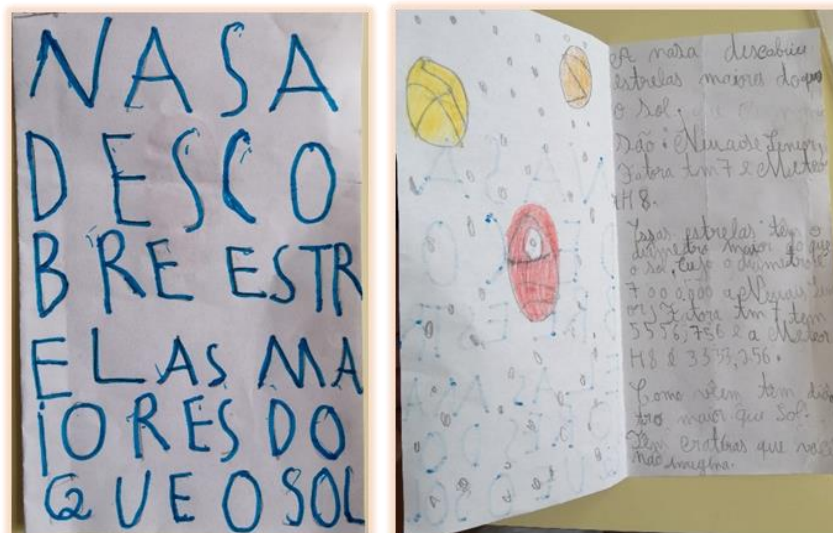 NASA
DESCO
BRE ESTR
ELAS MA
IORES DO
QUE O SOL
A nasa descobriu
estrelas maiores do que
o sol.
São:
Fatora tm7 e Meteor
H8.
Essas estrelas tem o
diâmetro maior do que
o sol, cujo o diâmetro é
700.000 a
Fatora tm7 tem
5556,756 e a Meteor
H8 é 3353,256.
Como vêem tem diâme
tro maior que Sol.
Tem crateras que você
não imagina.